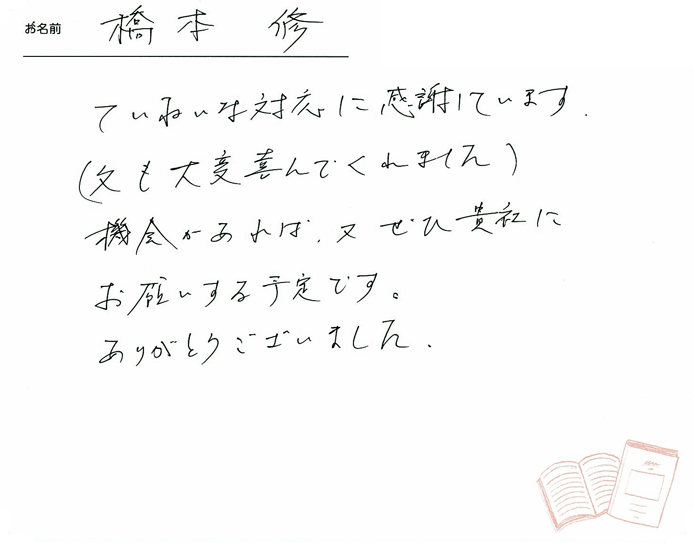 お名前 橋本 修
ていねいな対応に感謝しています.
(父も大変喜んでくれました)
機会があれば、又ぜひ貴社に
お願いする予定です。
ありがとうございました.